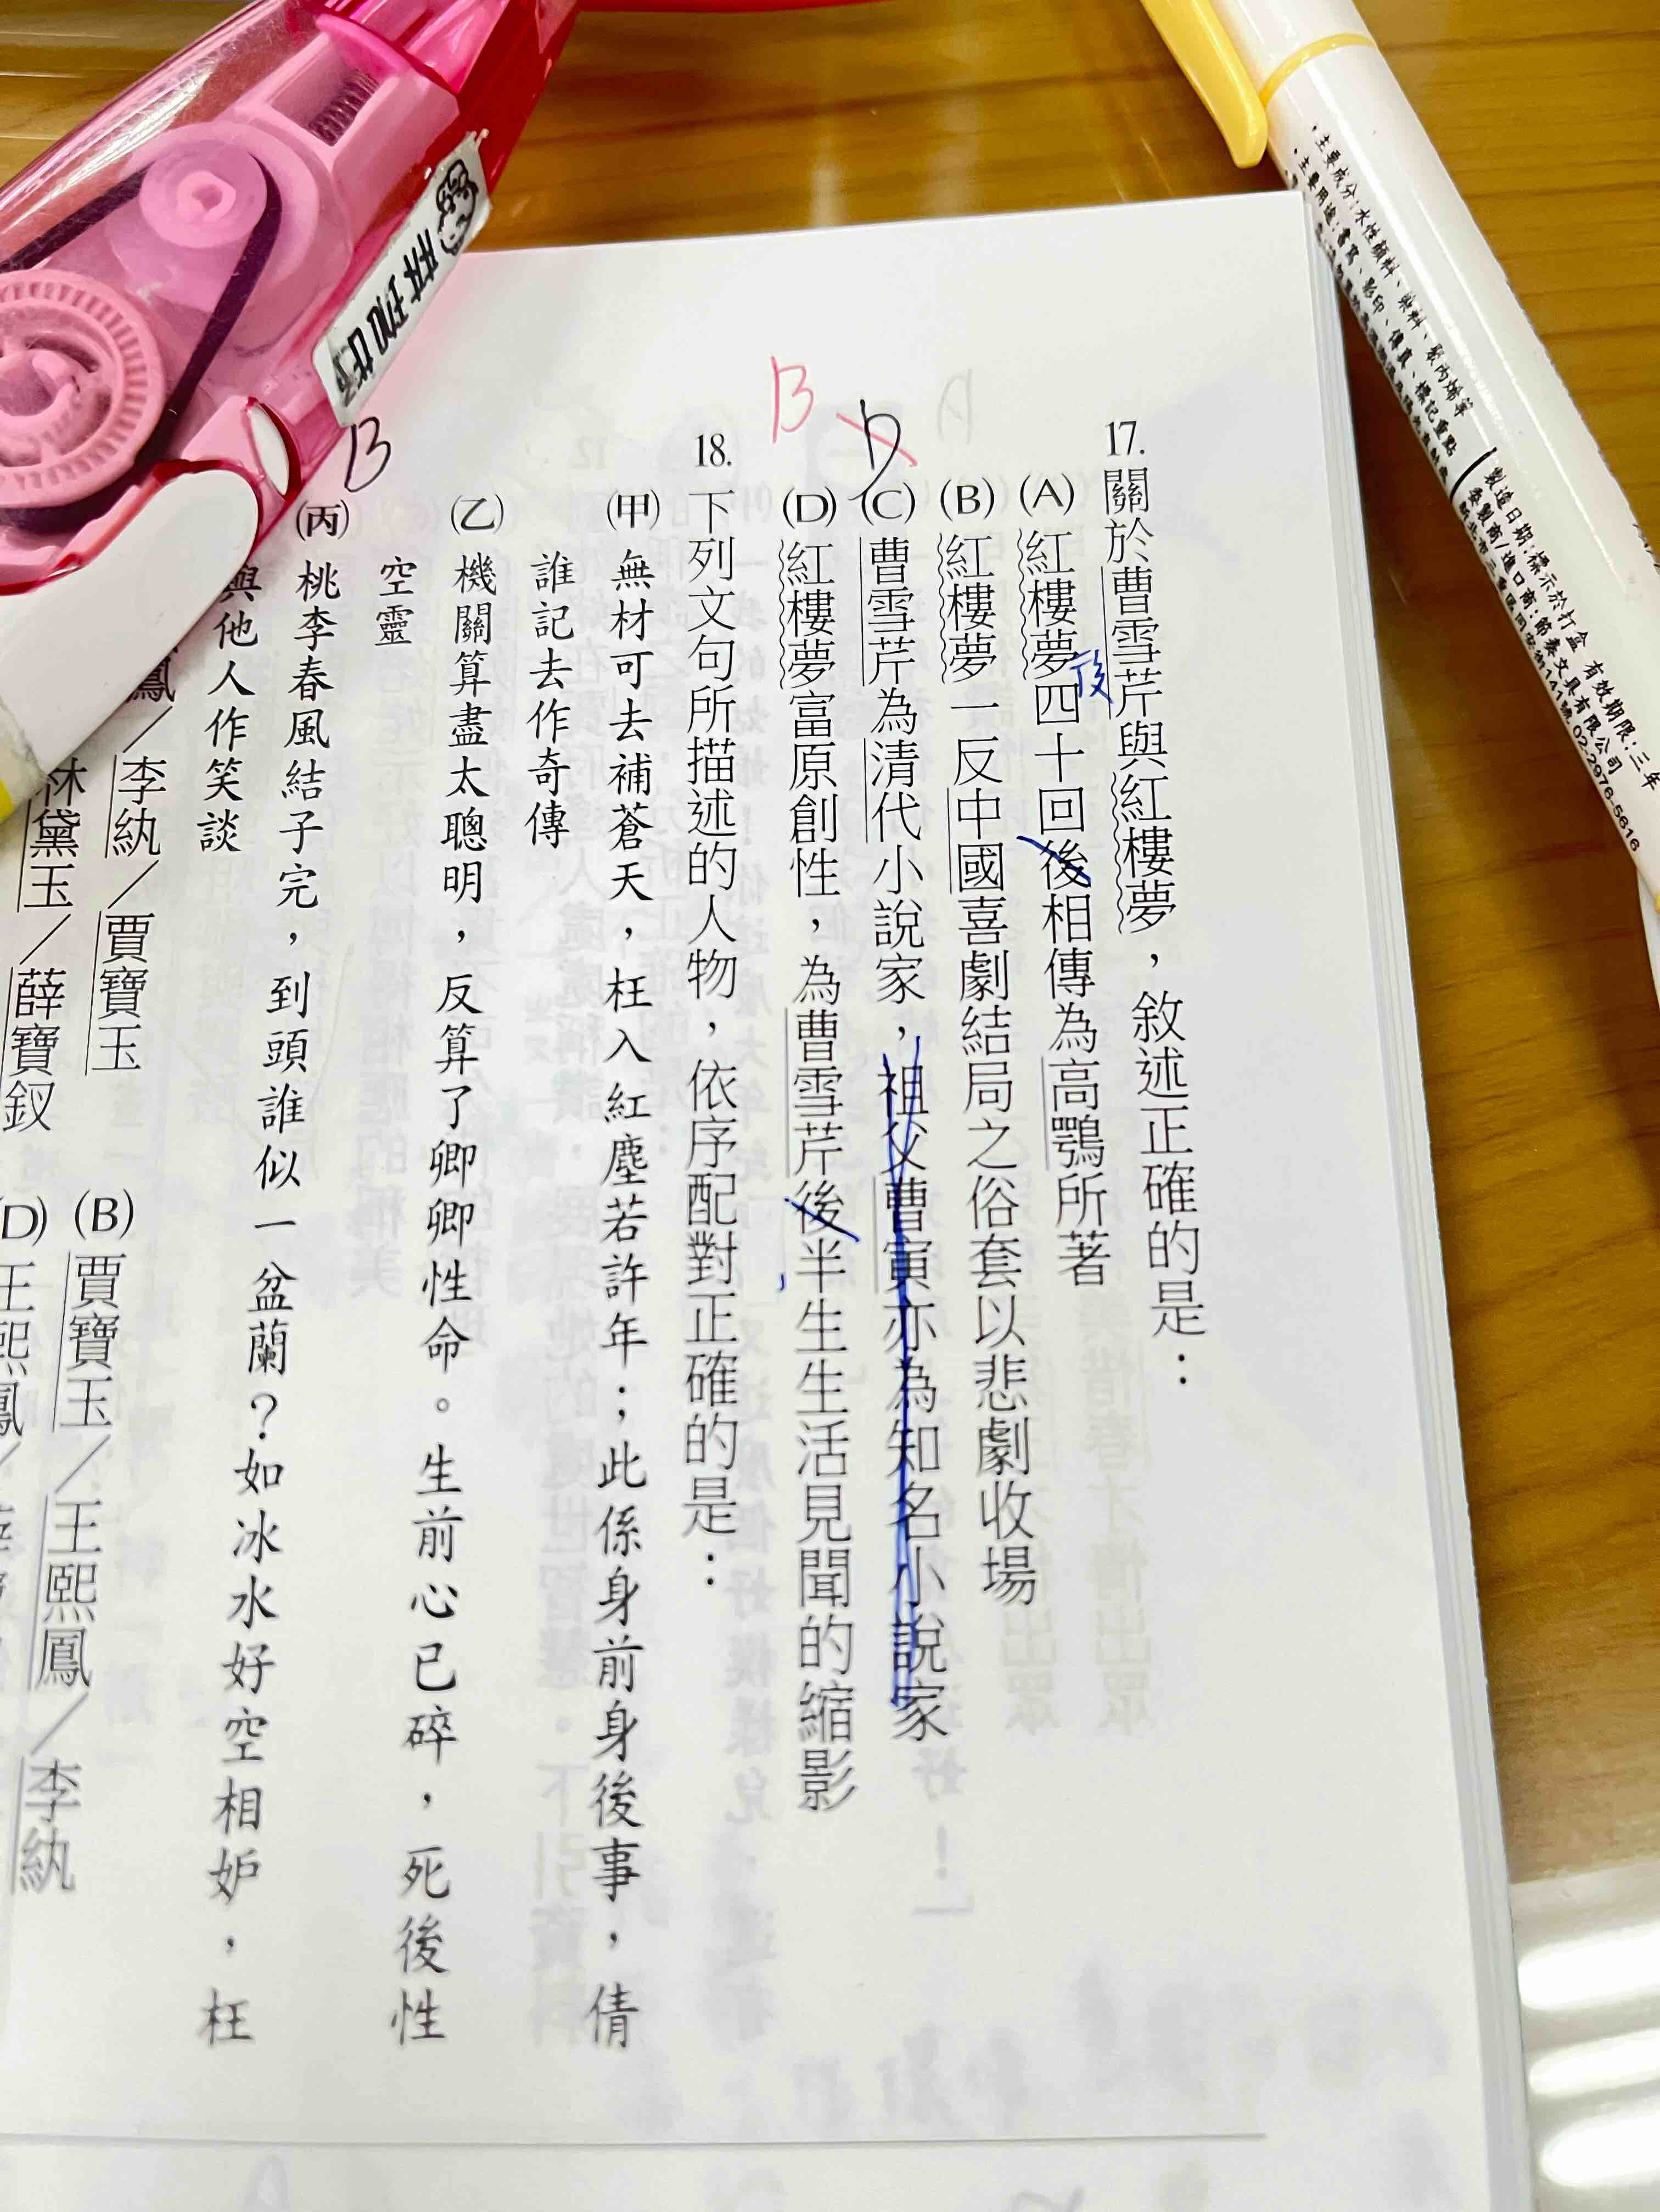 17.關於曹雪芹與紅樓夢，敘述正確的是：
(A)紅樓夢四十回後相傳為高鶚所著
後
(B)紅樓夢一反中國喜劇結局之俗套以悲劇收場
D
(C)曹雪芹為清代小說家，祖父曹寅亦為知名小說家
B
(D)紅樓夢富原創性，為曹雪芹後半生生活見聞的縮影
18.下列文句所描述的人物，依序配對正確的是：
(甲)無材可去補蒼天，枉入紅塵若許年；此係身前身後事，倩
誰記去作奇傳
(乙)機關算盡太聰明，反算了卿卿性命。生前心已碎，死後性
空靈
B
(丙)桃李春風結子完，到頭誰似一盆蘭？如冰水好空相妒，枉
與他人作笑談
鳳／李紈／賈寶玉
(B)賈寶玉／王熙鳳／李紈
林黛玉／薛寶釵
(D)王熙鳳／
‧主要成分：水性顏料、染料、
‧主要用途：書寫、影印、傳真、標記重點
製造日期：標示於打盒 有效期限：三年
02-2976-5616